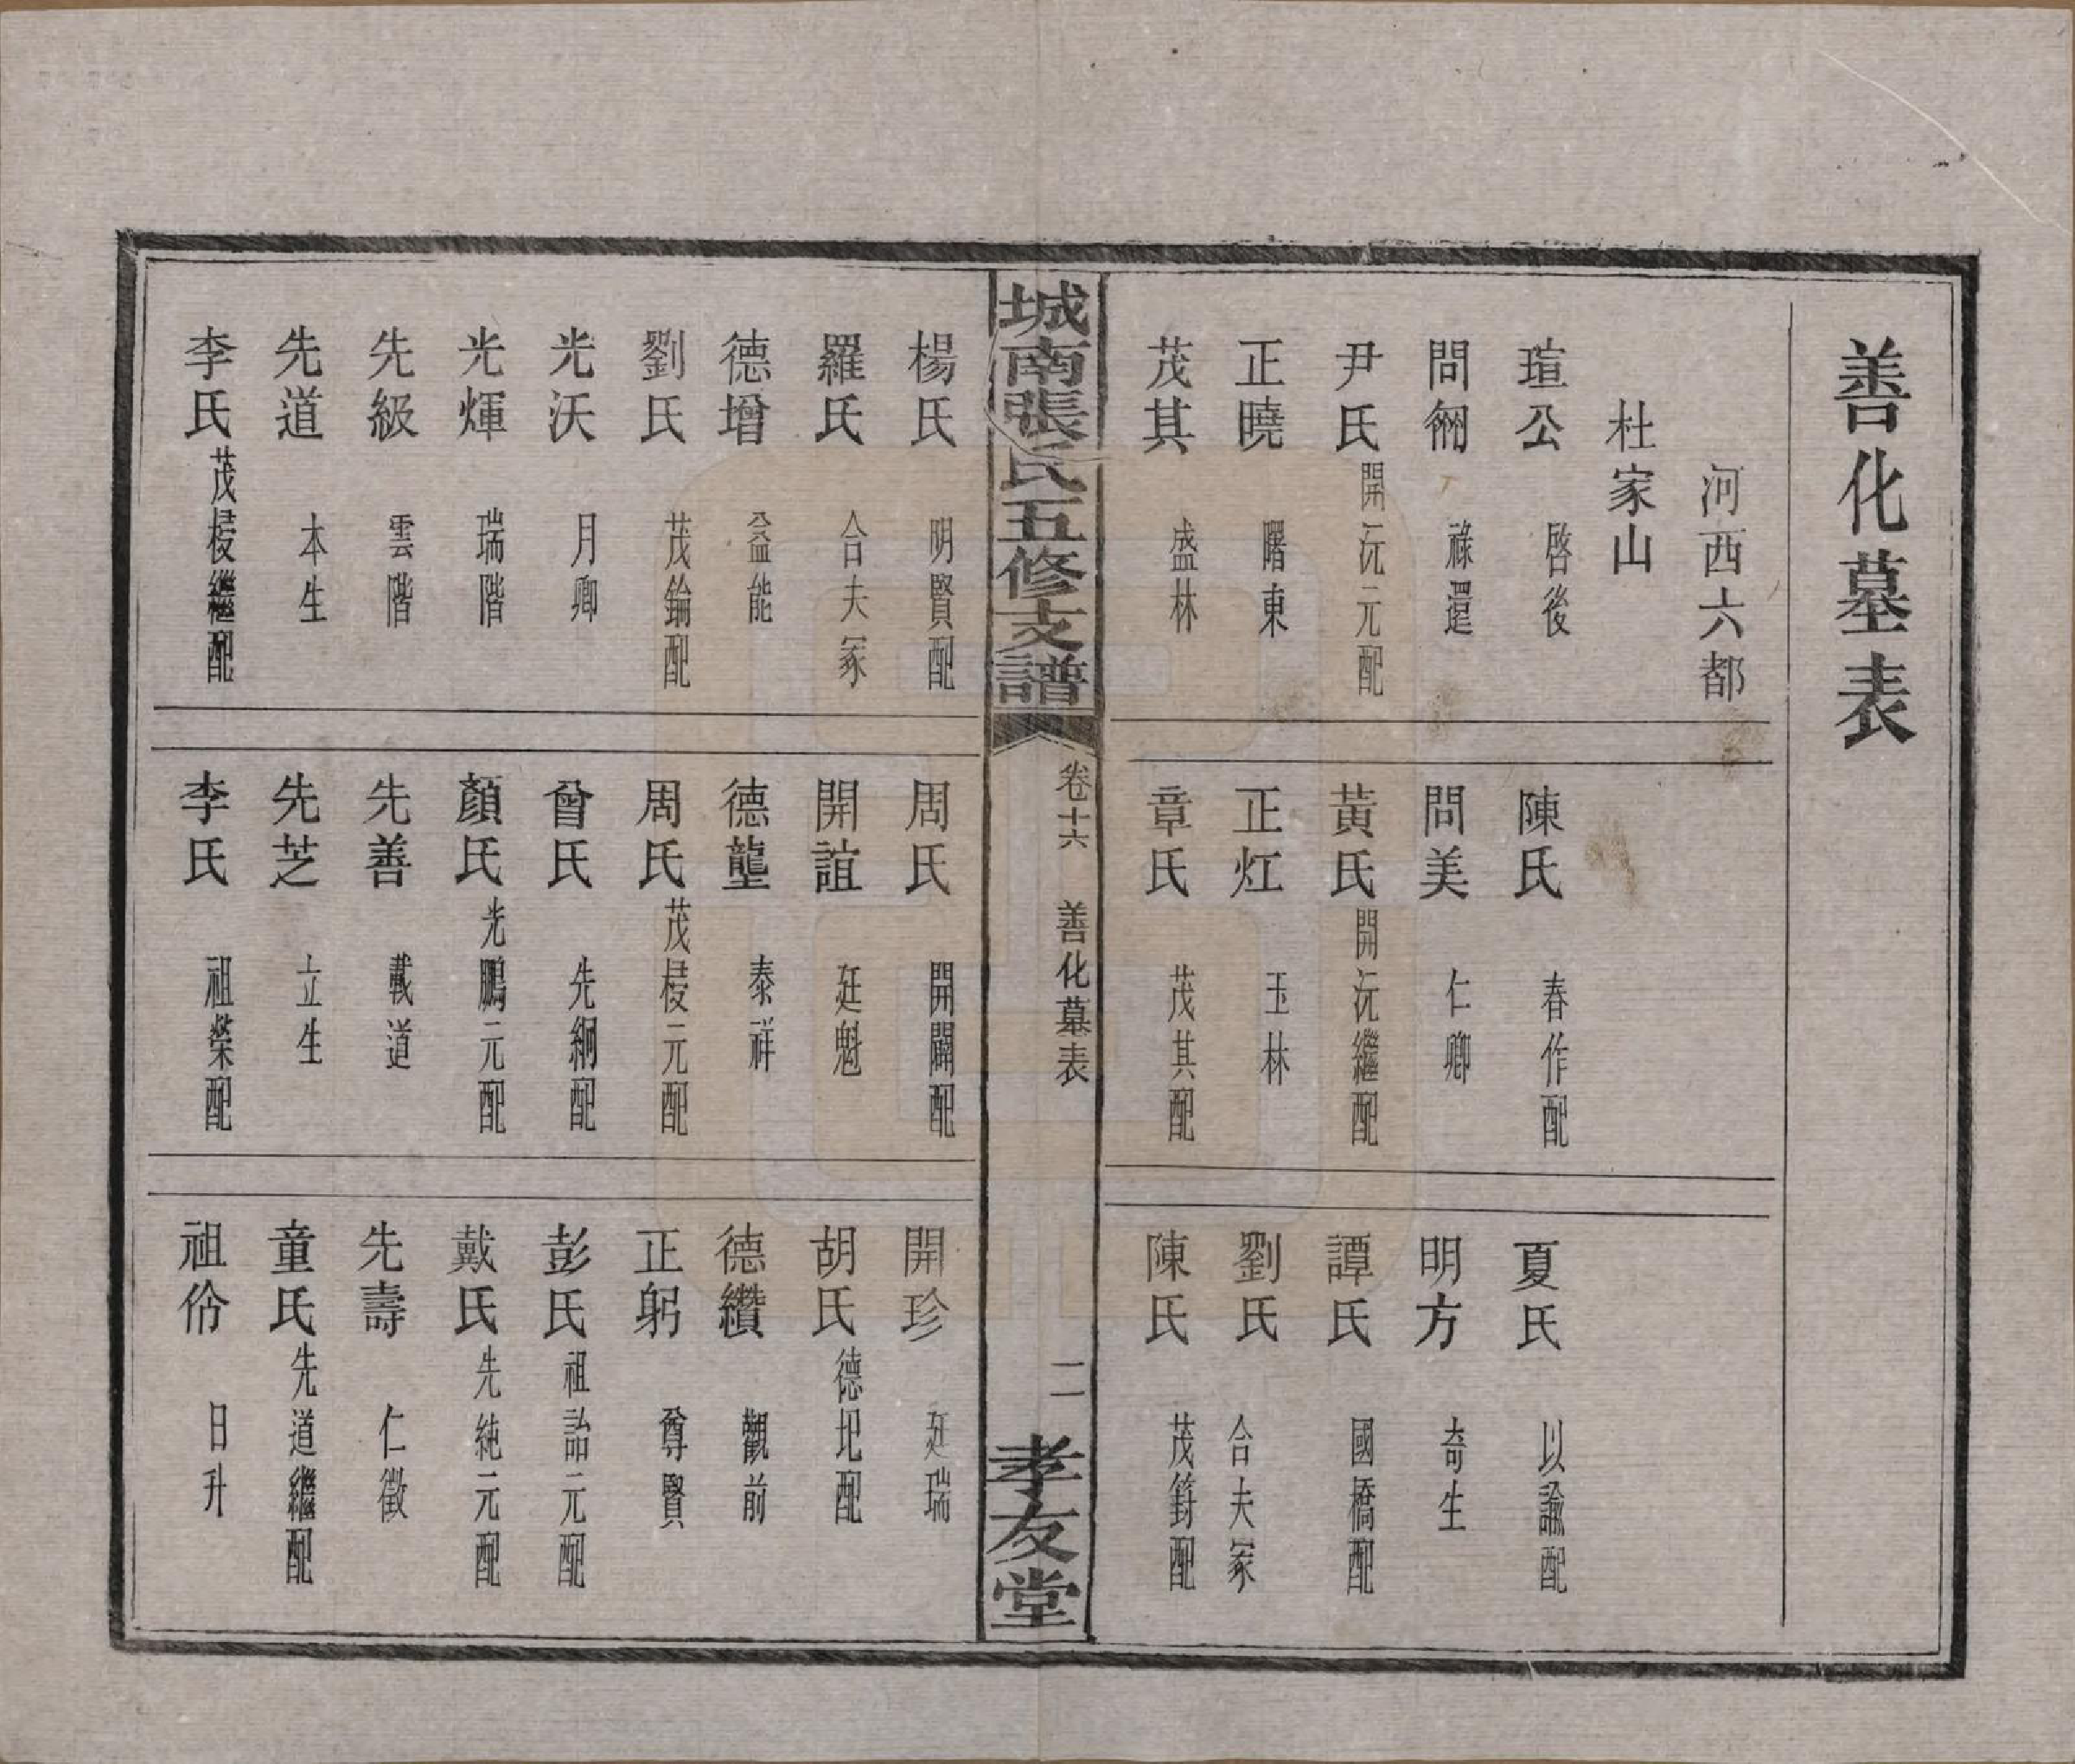 善化墓表
河西六都
杜家山
瑄公 啓後
陳氏 春作配
夏氏 以諭配
問 祿還
問美 仁卿
明方 奇生
尹氏 開沅元配
黃氏 開沅繼配
譚氏 國橋配
正曉 曙東
正灴 玉林
劉氏 合夫冢
茂其 盛林
章氏 茂其配
陳氏 茂配
城南張氏五修支譜
卷十六 善化墓表
二
孝友堂
楊氏 明賢配
周氏 開闢配
開珍 廷瑞
羅氏 合夫冢
開誼 廷魁
胡氏 德圯配
德增 益能
德壟 泰祥
德纘 觀前
劉氏 茂錀配
周氏 茂棂元配
正躬 尊賢
光沃 月卿
曾氏 先綱配
彭氏 祖詒元配
光煇 瑞階
顏氏 光鵬元配
戴氏 先純元配
先級 雲階
先善 載道
先壽 仁徵
先道 本生
先芝 立生
童氏 先道繼配
李氏 茂繼配
李氏 祖榮配
祖佾 日升